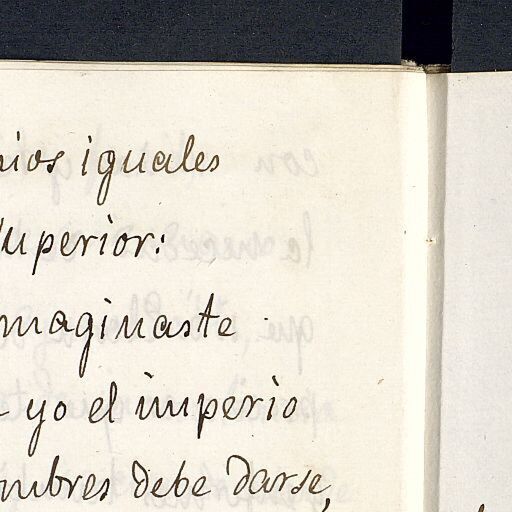 iguales
uperior:
maginaste
yo el imperio
mbres debe darse,